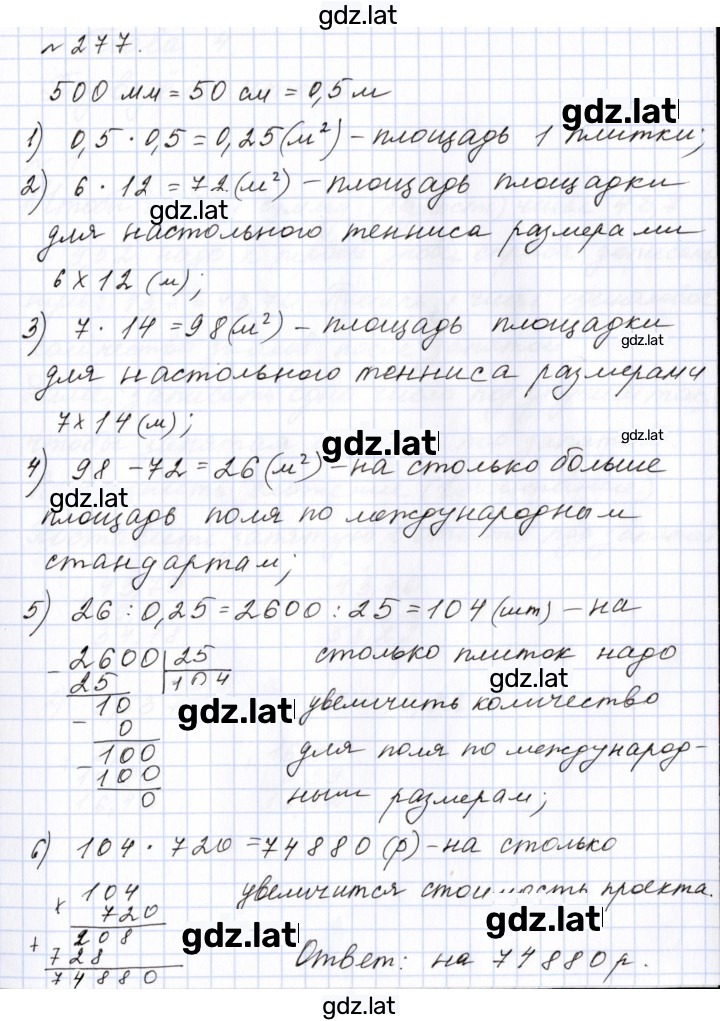 gdz.lat
№ 277.
500 мм = 50 см = 0,5 м
gdz.lat
1) 0,5 · 0,5 = 0,25 (м²) – площадь 1 плитки;
2) 6 · 12 = 72 (м²) – площадь площадки
gdz.lat
для настольного тенниса размерами
6 × 12 (м);
3) 7 · 14 = 98 (м²) – площадь площадки
gdz.lat
для настольного тенниса размерами
7 × 14 (м);
gdz.lat
gdz.lat
4) 98 – 72 = 26 (м²) – на столько больше
gdz.lat
площадь поля по международным
стандартам;
5) 26 : 0,25 = 2600 : 25 = 104 (шт) – на
столько плиток надо
gdz.lat
увеличить количество
для поля по международ-
ным размерам;
- 2600 | 25
25 | 104
gdz.lat
- 10
0
- 100
100
0
6) 104 · 720 = 74880 (р) – на столько
увеличится стоимость проекта.
× 104
720
gdz.lat
+ 208
gdz.lat
728
74880
Ответ: на 74880 р.
gdz.lat